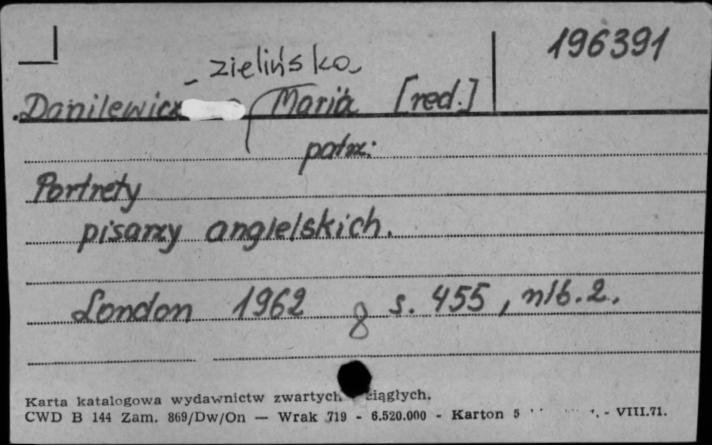 196391
- zielińska
Danilewicz Maria [red.]
patrz:
Portrety
pisarzy angielskich.
London 1962 8 s. 455, nlb. 2.
Karta katalogowa wydawnictw zwartych ciągłych.
CWD B 144 Zam. 869/Dw/On — Wrak 719 - 6.520.000 - Karton 5 - VIII.71.